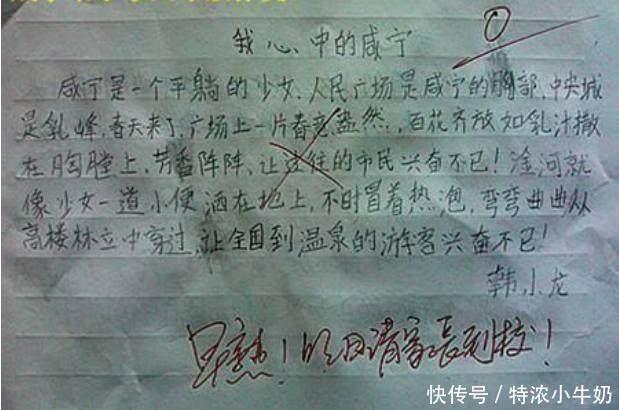 我心中的咸宁
咸宁是一个平躺的少女,人民广场是咸宁的胸部,中央城
是乳峰,春天来了,广场上一片春意盎然,百花齐放如乳汁撒
在胸膛上,芳香阵阵、让过往的市民兴奋不已!淦河就
像少女一道小便洒在地上,不时冒着热泡,弯弯曲曲从
高楼林立中穿过,让全国到温泉的游客兴奋不已!
韩小龙
早熟!明日请家长到校!
快传号/特浓小牛奶